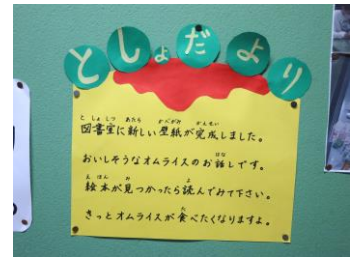 としょだより
図書室に新しい壁紙が完成しました。
おいしそうなオムライスのお話しです。
絵本が見つかったら読んでみて下さい。
きっとオムライスが食べたくなりますよ。